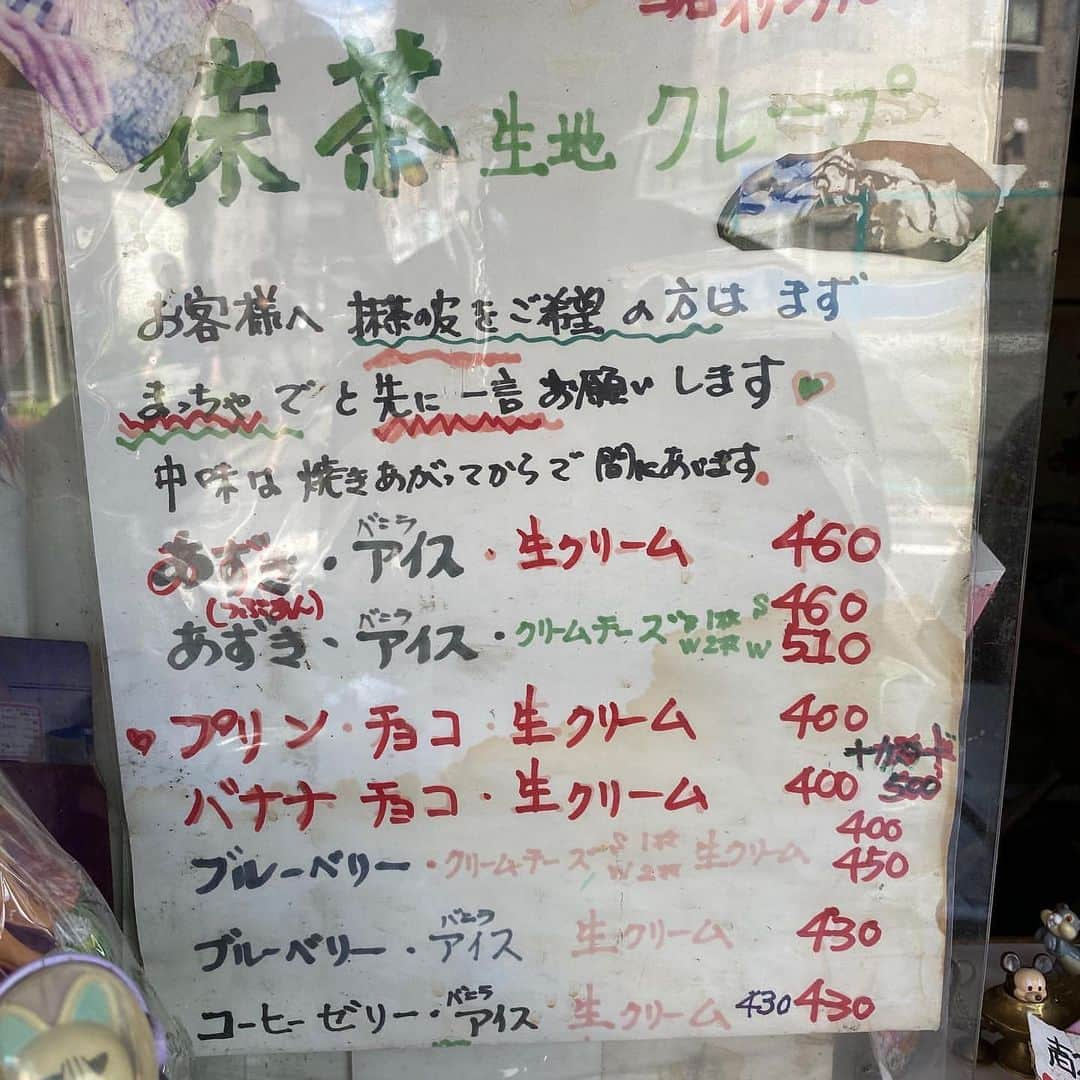 抹茶 生地 クレープ
お客様へ 抹茶の皮をご希望の方は まず
まっちゃでと 先に一言お願いします
中味は焼きあがってからで間にあいます。
あずき・バニラアイス・生クリーム 460
(つぶあん)
あずき・バニラアイス・クリームチーズ S 1本 S 460
W 2本 W 510
プリン・チョコ・生クリーム 400
バナナ チョコ・生クリーム 400 500
ブルーベリー・クリームチーズ S 1本 W 2本 生クリーム 400 450
ブルーベリー・バニラアイス 生クリーム 430
コーヒーゼリー・バニラアイス 生クリーム 430 430